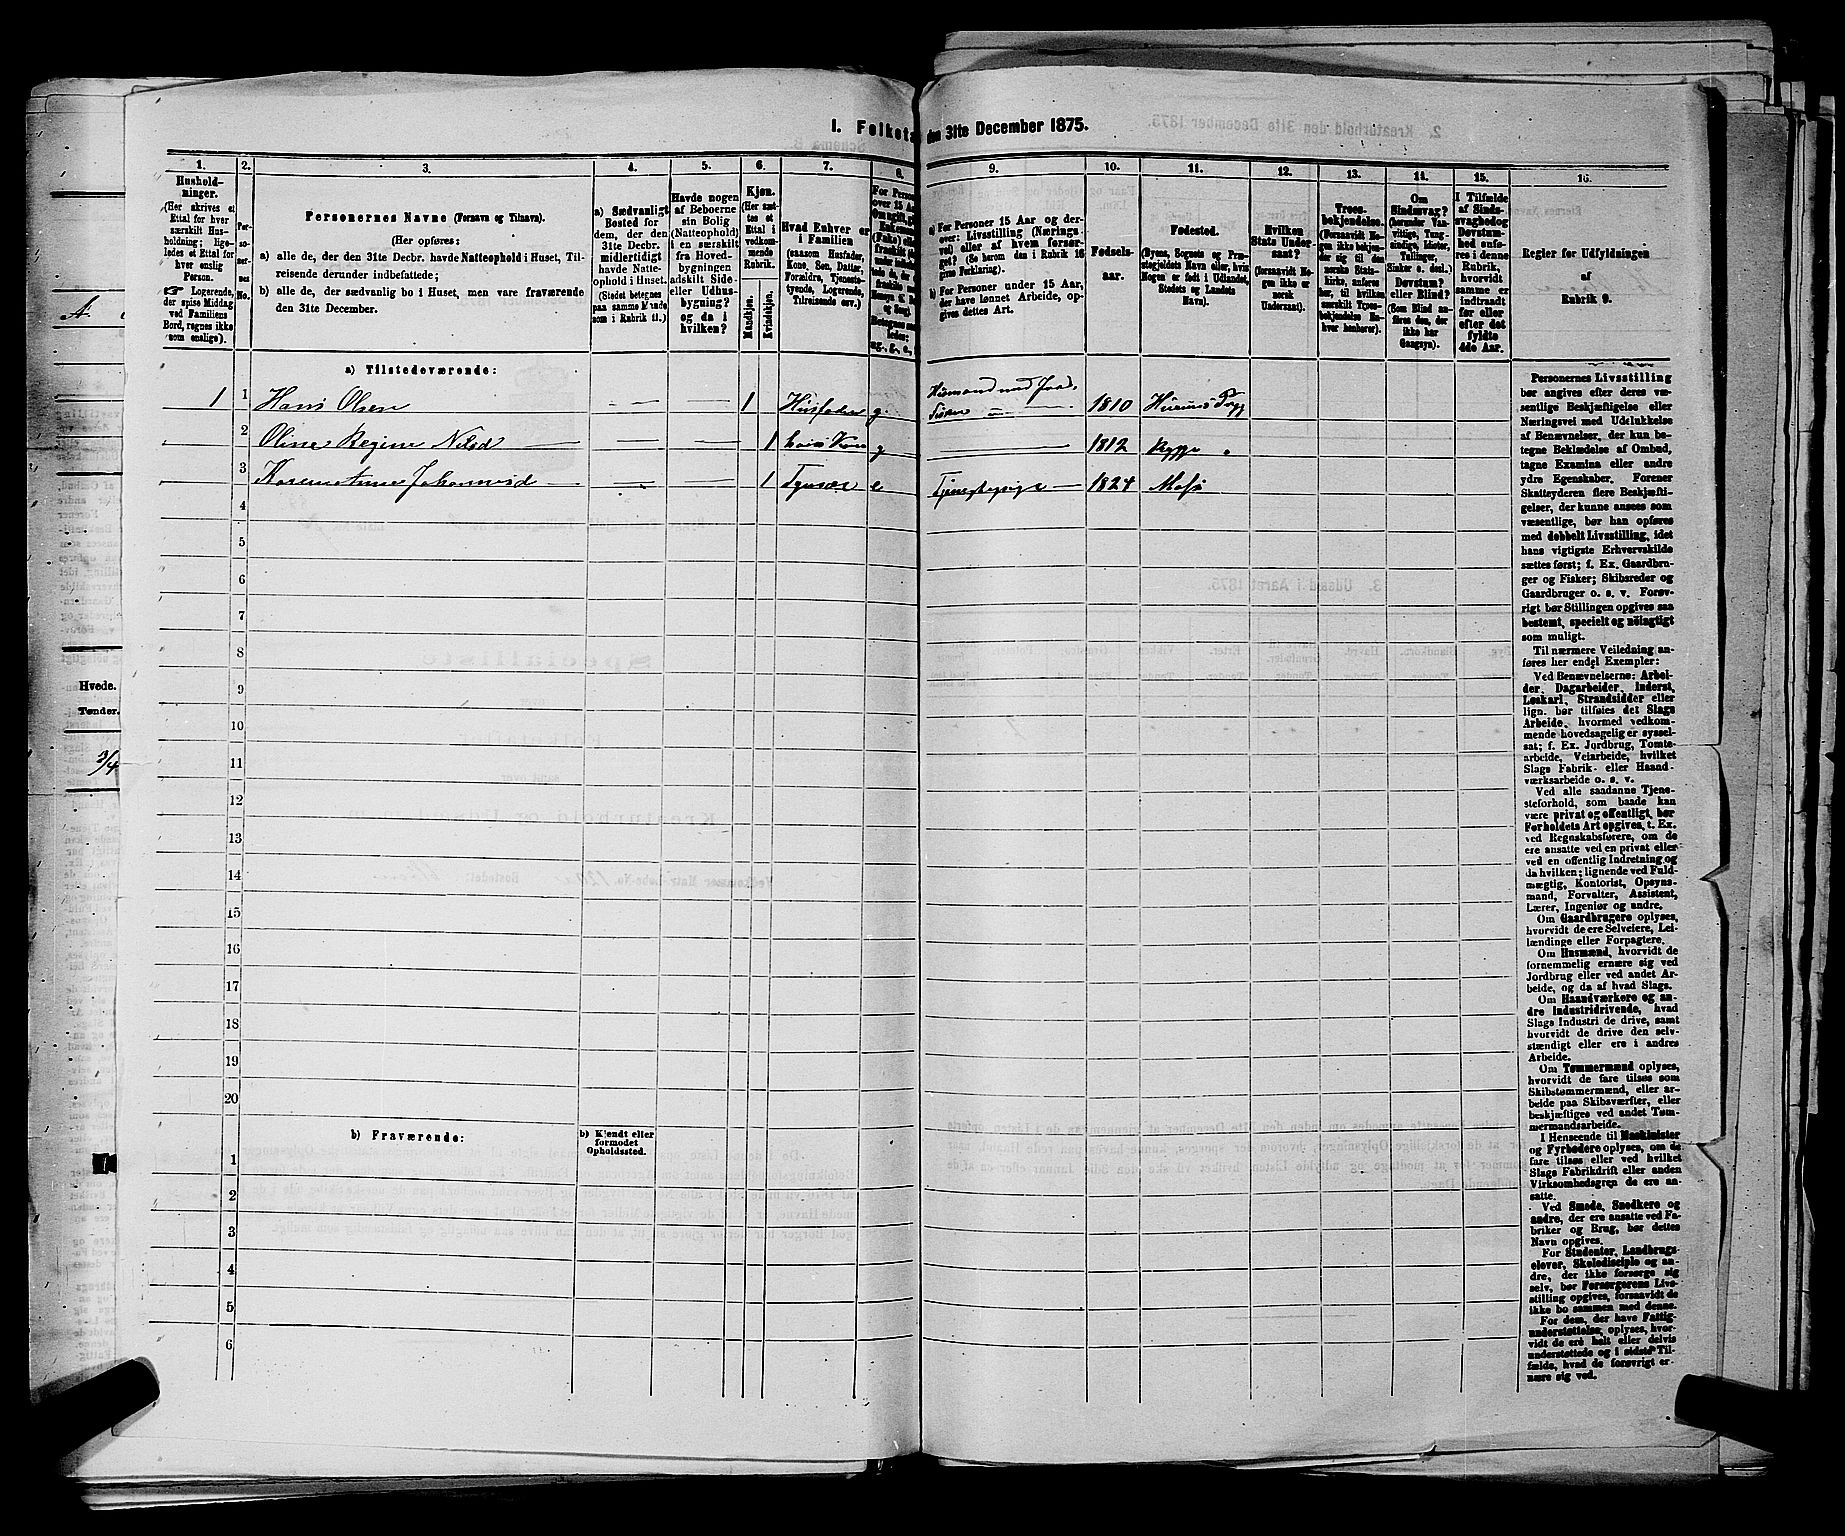 1. Folketæ
den 31te December 1875.
1. 2. 3. 4. 5. 6. 7. 8. 9. 10. 11. 12. 13. 14. 15. 16.
Hushold-
ninger.
(Her skrives et
Ettal for hver
særskilt Hus-
holdning; lige-
ledes et Ettal for
hver enslig
Person.
☞ Logerende,
der spise Middag
ved Familiens
Bord, regnes ikke
som enslige).
Per-
so-
ner-
nes
No.
Personernes Navne (Fornavn og Tilnavn).
(Her opføres:
a) alle de, der den 31te Decbr. havde Natteophold i Huset, Til-
reisende derunder indbefattede;
b) alle de, der sædvanlig bo i Huset, men vare fraværende
den 31te December.
a) Sædvanligt
Bosted for
dem, der den
31te Decbr.
midlertidigt
havde Natte-
ophold i Huset.
(Stedet betegnes
paa samme Maade
som i Rubrik 11.)
Havde nogen
af Beboerne
sin Bolig
(Natteophold)
i en særskilt
fra Hoved-
bygningen
adskilt Side-
eller Udhus-
bygning?
og da i
hvilken?
Kjøn.
(Her sæt-
tes et
Ettal i
vedkom-
mende
Rubrik.
Mandkjøn.
Kvindkjøn.
Hvad Enhver er
i Familien
(saasom Husfader,
Kone, Søn, Datter,
Forældre, Tjeneste-
tyende, Logerende,
Tilreisende osv.)
a) For Personer 15 Aar og der-
over: Livsstilling (Nærings-
vei) eller af hvem forsør-
get? (Se herom den i Rubrik 16
givne Forklaring).
b) For Personer under 15 Aar,
der have lønnet Arbeide, op-
gives dettes Art.
Fødsels-
aar.
Fødested.
(Byens, Sognets og Præ-
stegjeldets Navn eller, hvis
Nogen er født i Udlandet,
Stedets og Landets
Navn).
Hvilken
Stats Under-
saat?
(forsaavidt No-
gen ikke er
norsk
Undersaat).
Troes-
bekjendelse.
(Forsaavidt No-
gen ikke beken-
der sig til den
norske Stats-
kirke, anføres
her, til hvilken
særskilt Troes-
bekjendelse En-
hver henhører).
Om
Sindssvag?
(herunder Van-
vittige, Tung-
sindige, Idioter,
Tullinger,
Sinker o. desl.)
Døvstum?
eller Blind?
(Som Blind an-
føres den, der
ikke har
Gangsyn).
I Tilfælde
af Sinds-
svaghed og
Døvstum-
hed anfø-
res i denne
Rubrik,
hvorvidt
samme er
indtraadt
før eller
efter det
fyldte
4de Aar.
Regler for Udfyldningen
af
Rubrik 9.
a) Tilstedeværende:
1 1 Hans Olsen 1 Husfader g Husmand med Jord 1810 Rygge
2 Oline Regine Nilsd 1 hans Kone g 1812 Rygge
3 Johannesd 1 e 1824 Moss
4
5
6
7
8
9
10
11
12
13
14
15
16
17
18
19
20
b) Fraværende:
b) Kjendt eller
formodet
Opholdssted.
1
2
3
4
5
6
Personernes Livsstilling
bør angives efter deres væ-
sentlige Beskjæftigelse eller
Næringsvei med Udelukkelse
af Benævnelser, der kun be-
tegne Beklædelse af Ombud,
tagne Examina eller andre
ydre Egenskaber. Forener
Skatteyderen flere Beskjæfti-
gelser, der kunne ansees som
væsentlige, bør han opføres
med dobbelt Livsstilling, idet
hans vigtigste Erhvervskilde
sættes først; f. Ex. Gaardbru-
ger og Fisker; Skibsreder og
Gaardbruger o. s. v. Forøv-
rigt bør Stillingen opgives saa
bestemt, specielt og nøiagtigt
som muligt.
Til nærmere Veiledning an-
føres her endel Exempler:
Ved Benævnelserne: Arbei-
der, Dagarbeider, Inderst,
Løskarl, Strandsidder eller
lign. bør tilføies det Slags
Arbeide, hvormed vedkom-
mende hovedsagelig er syssel-
sat; f. Ex. Jordbrug, Tomte-
arbeide, Veiarbeide, hvilket
Slags Fabrik- eller Haand-
værksarbeide o. s. v.
Ved alle saadanne Tjene-
steforhold, som baade kan
være privat og offentligt, bør
Forholdets Art opgives, t. Ex.
ved Regnskabsførere, om de
ere ansatte ved en privat eller
ved en offentlig Indretning og
da hvilken; lignende ved Fuld-
mægtig, Kontorist, Opsyns-
mand, Forvalter, Assistent,
Lærer, Ingeniør og andre.
Om Gaardbrugere oplyses,
hvorvidt de ere Selveiere, Lei-
lændinge eller Forpagtere.
Om Husmænd, hvorvidt de
fornemmelig ernære sig ved
Jordbrug eller ved andet Ar-
beide, og da af hvad Slags.
Om Haandværkere og an-
dre Industridrivende, hvad
Slags Industri de drive, samt
hvorvidt de drive den selv-
stændigt eller ere i andres
Arbeide.
Om Tømmermænd oplyses,
hvorvidt de fare tilsøs som
Skibstømmermænd, eller ar-
beide paa Skibsværfter, eller
beskjæftiges ved andet Tøm-
mermandsarbeide.
I Henseende til Maskinister
og Fyrbødere oplyses, om de
fare tilsøs eller ved hvilket
Slags Fabrikdrift eller anden
Virksomhedsgren de ere an-
satte.
Ved Smede, Snedkere og
andre, der ere ansatte ved Fa-
briker og Brug, bør dettes
Navn opgives.
For Studenter, Landbrugs-
elever, Skoledisciple og an-
dre, der ikke forsørge sig
selv, bør Forsørgerens Livs-
stilling opgives, forsaavidt de
ikke bo sammen med denne.
For dem, der have Fattig-
understøttelse, oplyses, hvor-
vidt de ere helt eller delvis
understøttede og i sidste Til-
fælde, hvad de forøvrigt er-
nære sig ved.
Hvede.
Tønder.
3/4